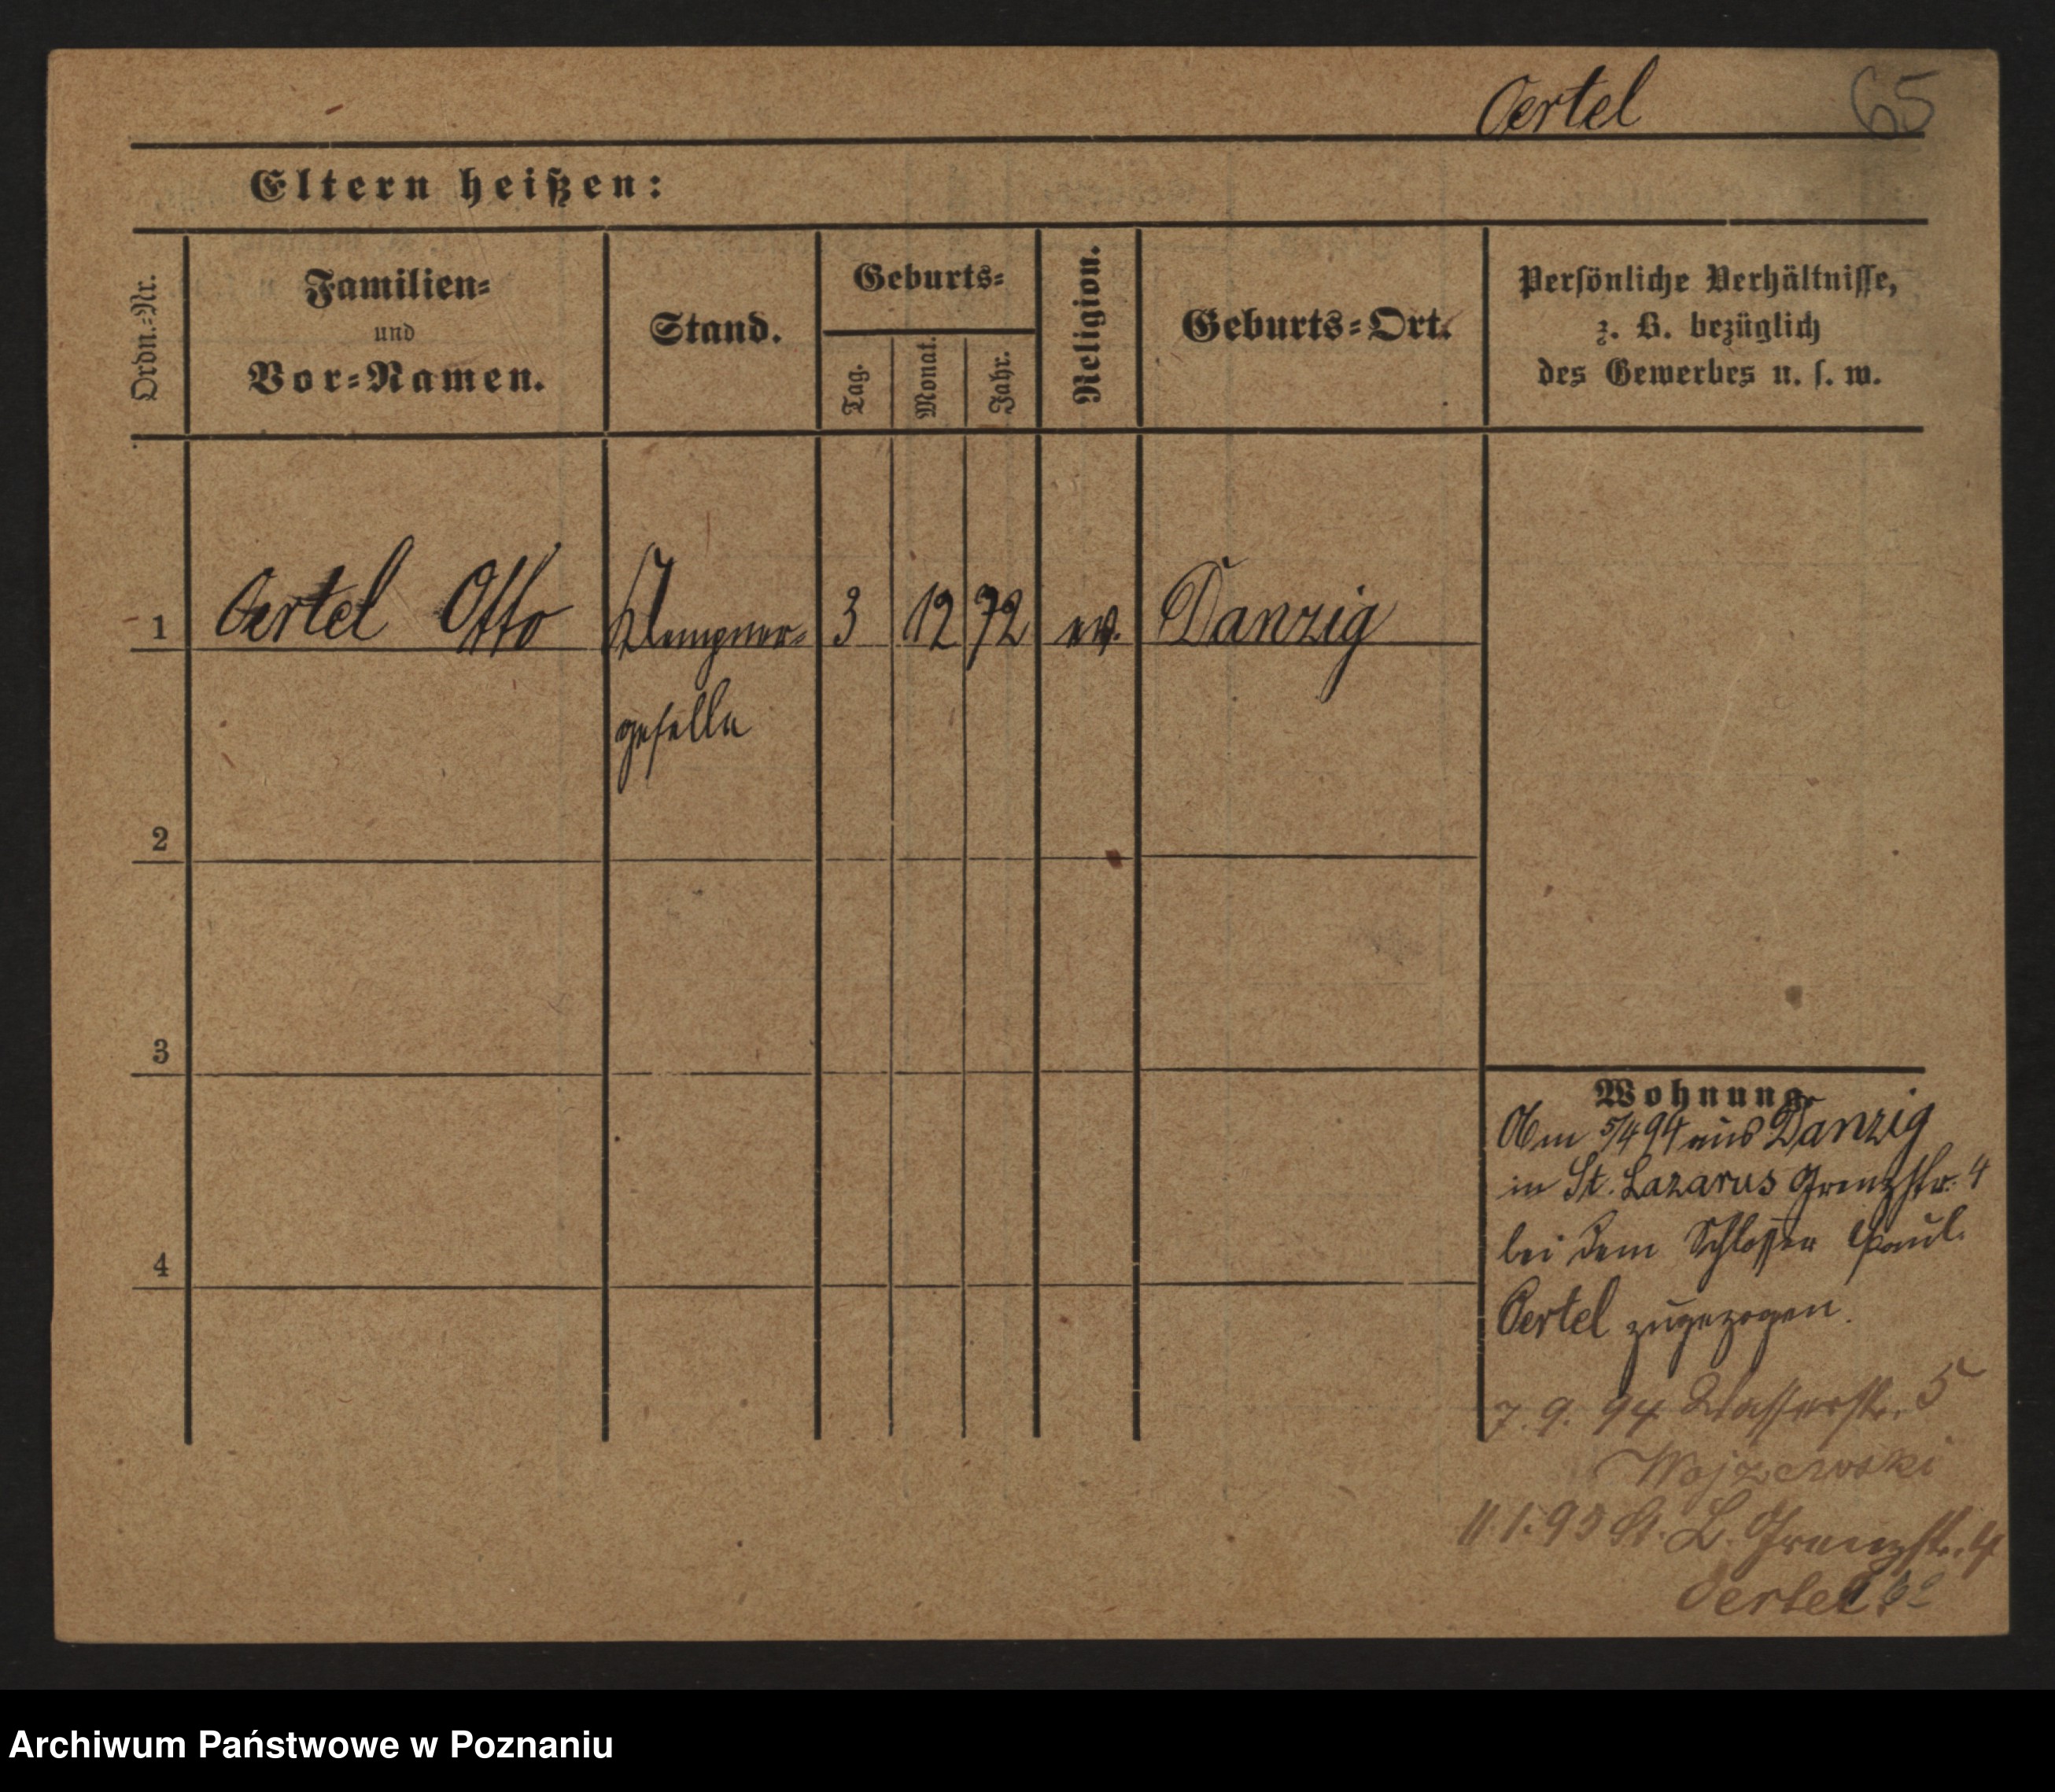 Oertel 65
Eltern heißen:
Ordn.-Nr.
Familien-
und
Vor-Namen.
Stand.
Geburts-
Tag.
Monat.
Jahr.
Religion.
Geburts-Ort.
Persönliche Verhältnisse,
z. B. bezüglich
des Gewerbes u. s. w.
1 Oertel Otto Klempner- 3 12 72 ev. Danzig
geselle
2
3
4
Wohnung.
Am 5/4 94 aus Danzig
in St. Lazarus Grenzstr. 4
bei dem Schlosser Paul
Oertel zugezogen.
7. 9. 94 Wasserstr. 5
Wojzewski
11. 1. 95 St. L. Grenzstr. 4
Oertel.
Archiwum Państwowe w Poznaniu